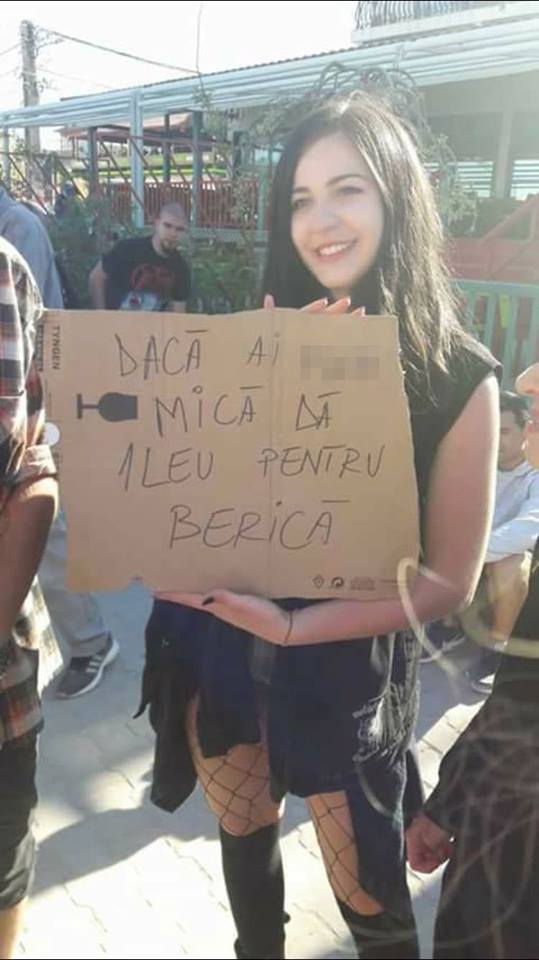 DACĂ AI
MICĂ DĂ
1LEU PENTRU
BERICĂ
TYNGEN